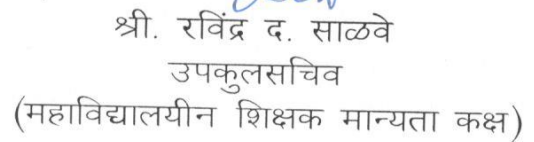 श्री. रविंद्र द. साळवे
उपकुलसचिव
(महाविद्यालयीन शिक्षक मान्यता कक्ष)